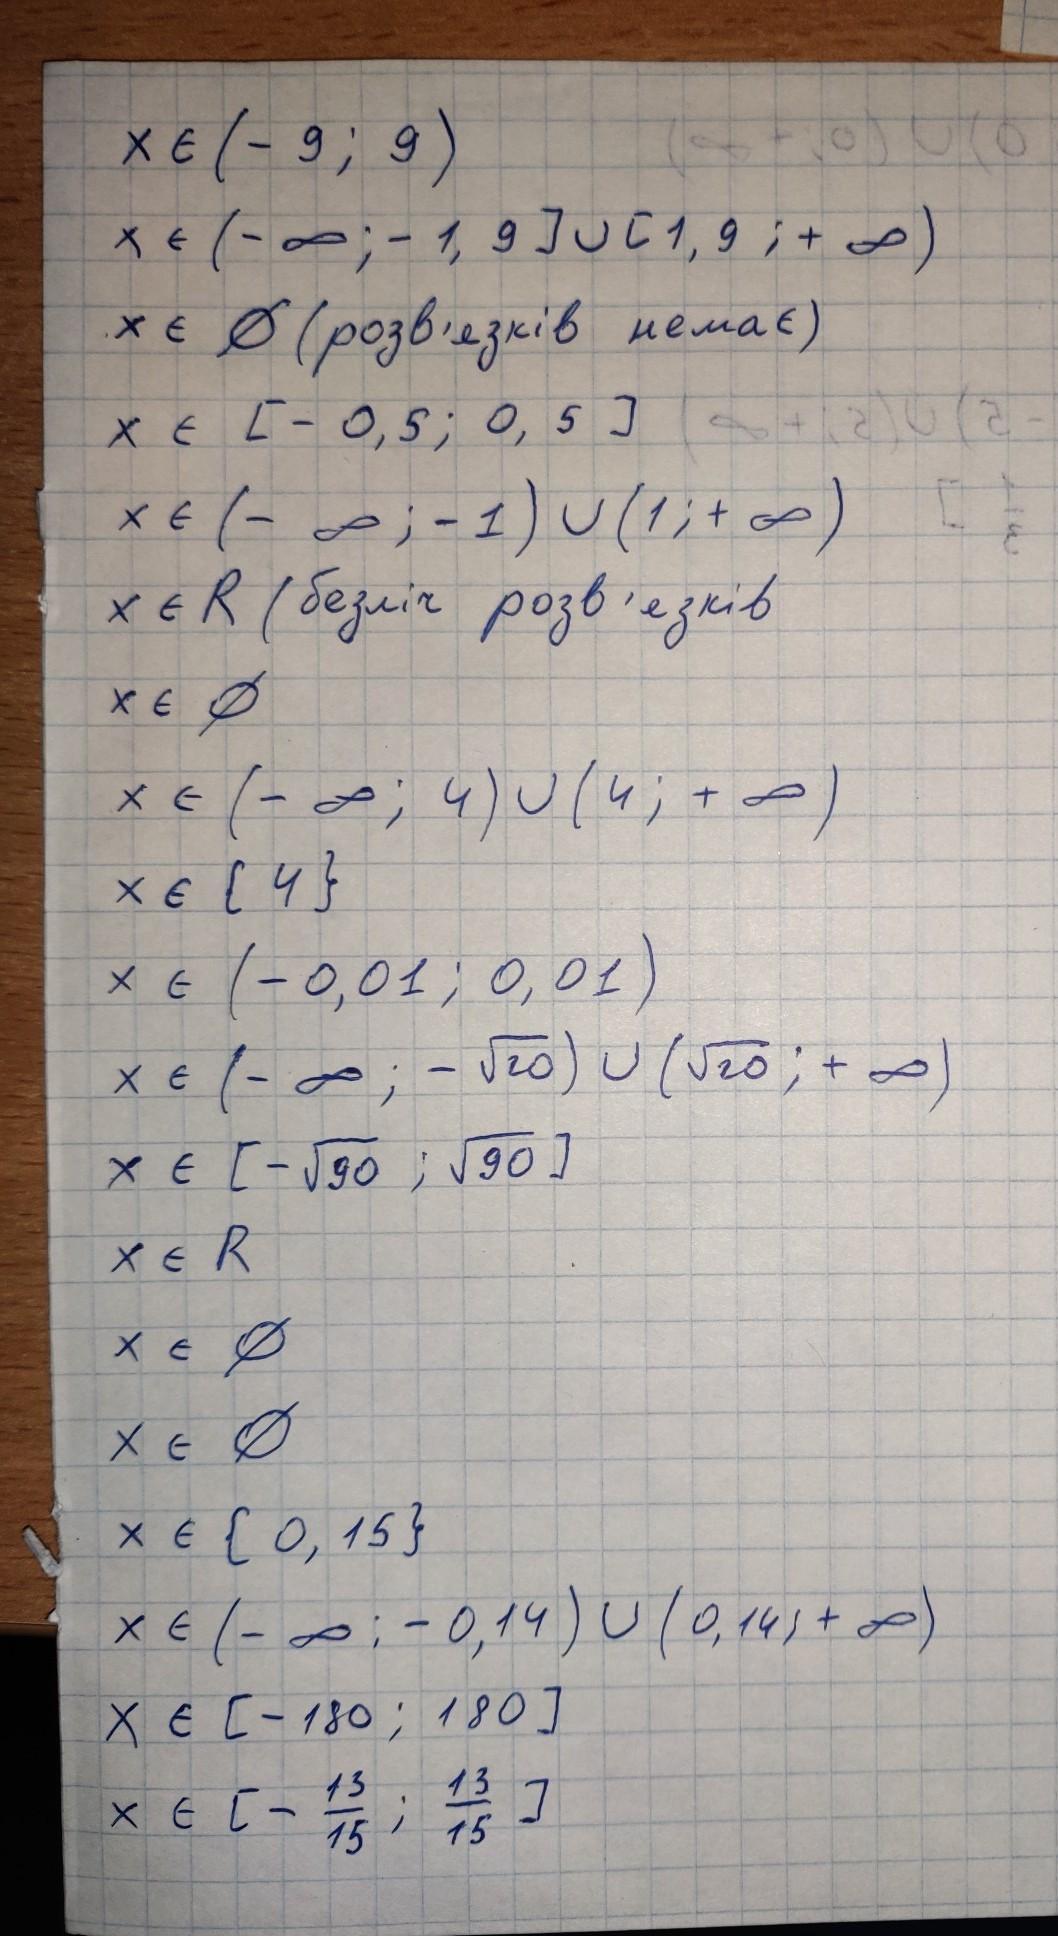 x ∈ (- 9; 9)
x ∈ (- ∞; - 1,9] ∪ [1,9; + ∞)
x ∈ ∅ (розв'язків немає)
x ∈ [- 0,5; 0,5]
x ∈ (- ∞; - 1) ∪ (1; + ∞)
x ∈ R (безліч розв'язків
x ∈ ∅
x ∈ (- ∞; 4) ∪ (4; + ∞)
x ∈ {4}
x ∈ (- 0,01; 0,01)
x ∈ (- ∞; - √20) ∪ (√20; + ∞)
x ∈ [- √90; √90]
x ∈ R
x ∈ ∅
x ∈ ∅
x ∈ {0,15}
x ∈ (- ∞; - 0,14) ∪ (0,14; + ∞)
x ∈ [- 180; 180]
x ∈ [- 13/15; 13/15]